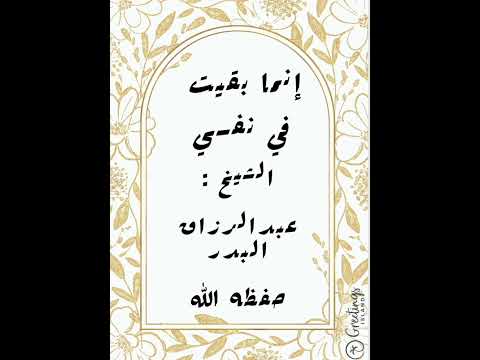 إنها بقيت
في نفسي
الشيخ :
عبدالرزاق
البدر
حفظه الله
Greetings
ISLAND